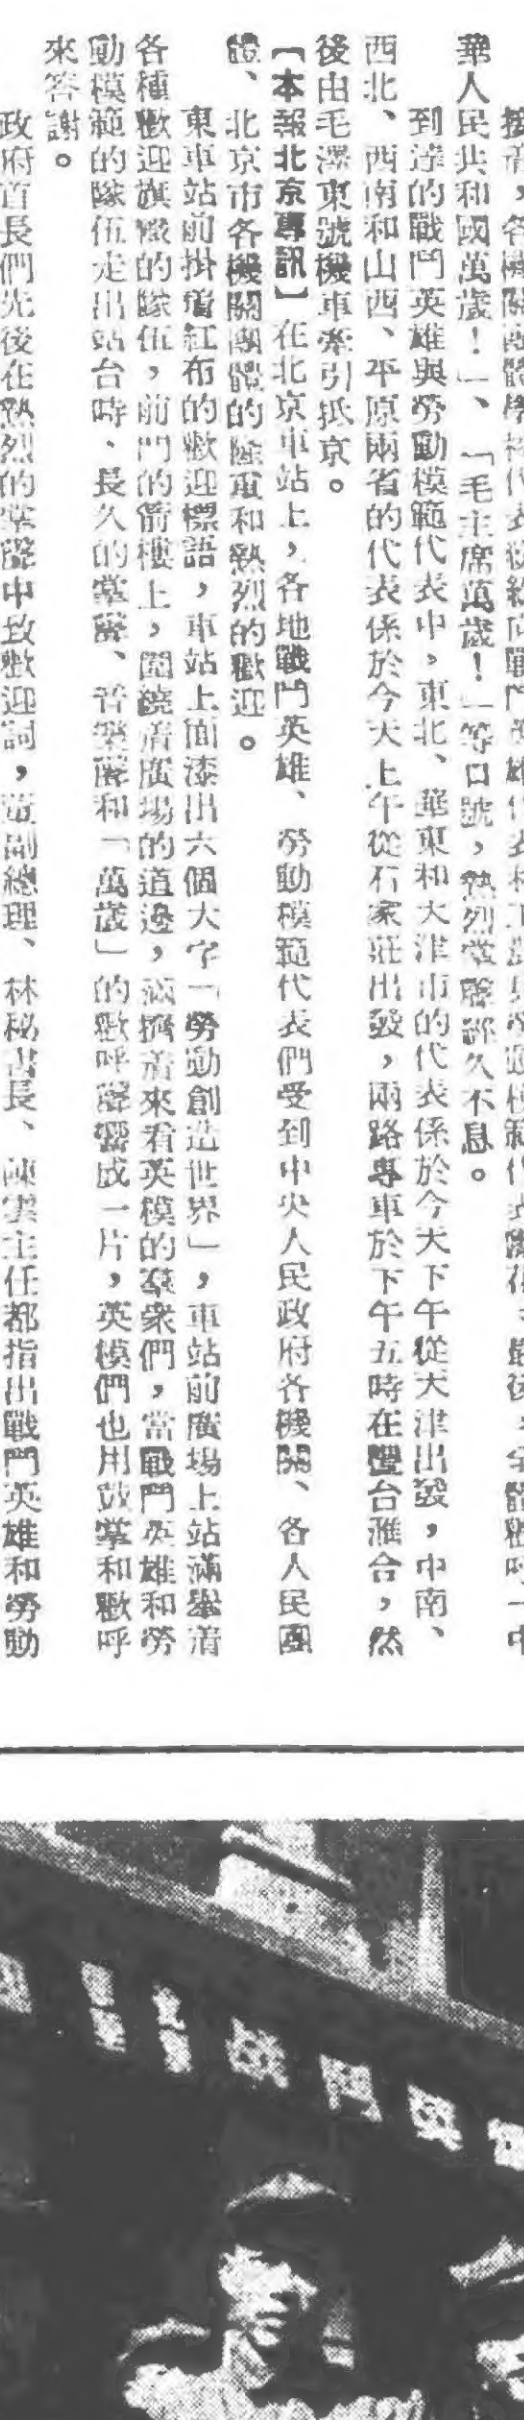 接着，各機關團體學校代表紛紛向戰鬥英雄代表和工農兵勞動模範代表獻花。最後，全體歡呼「中
華人民共和國萬歲！」、「毛主席萬歲！」等口號，熱烈掌聲許久不息。
到達的戰鬥英雄與勞動模範代表中，東北、華東和天津市的代表係於今天下午從天津出發，中南、
西北、西南和山西、平原兩省的代表係於今天上午從石家莊出發，兩路專車於下午五時在豐台滙合，然
後由毛澤東號機車牽引抵京。
【本報北京專訊】在北京車站上，各地戰鬥英雄、勞動模範代表們受到中央人民政府各機關、各人民團
體、北京市各機關團體的隆重和熱烈的歡迎。
東車站前掛着紅布的歡迎標語，車站上面漆出六個大字「勞動創造世界」，車站前廣場上站滿舉着
各種歡迎旗幟的隊伍，前門的箭樓上，圍繞着廣場的道邊，滿擠着來看英模的羣衆們，當戰鬥英雄和勞
動模範的隊伍走出站台時、長久的掌聲、音樂聲和「萬歲」的歡呼聲響成一片，英模們也用鼓掌和歡呼
來答謝。
政府首長們先後在熱烈的掌聲中致歡迎詞，董副總理、林秘書長、陳雲主任都指出戰鬥英雄和勞動
戰鬥英